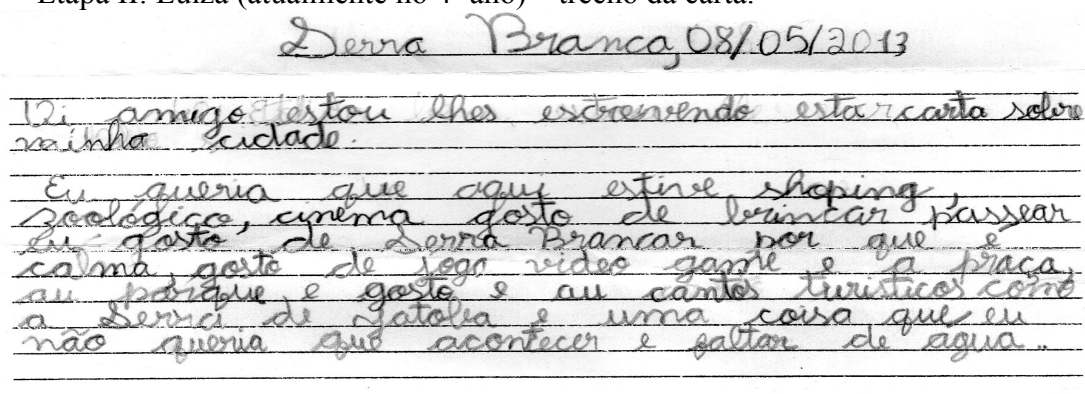 Etapa II: Luiza (atualmente no 4º ano) – trecho da carta.
Serra Branca, 08/05/2013
Oi amigo estou lhes escrenvendo estar carta sobre
minha cidade.
Eu queria que aqui estive shoping,
zoológico, cinema gosto de brincar passear
eu gosto de Serra Brancar por que é
calma, gosto de jogo video game e a praça,
au parque, e gosto e au cantos turisticos como
a Serra de Jatobá e uma coisa que eu
não queria que acontecer e faltar de agua..